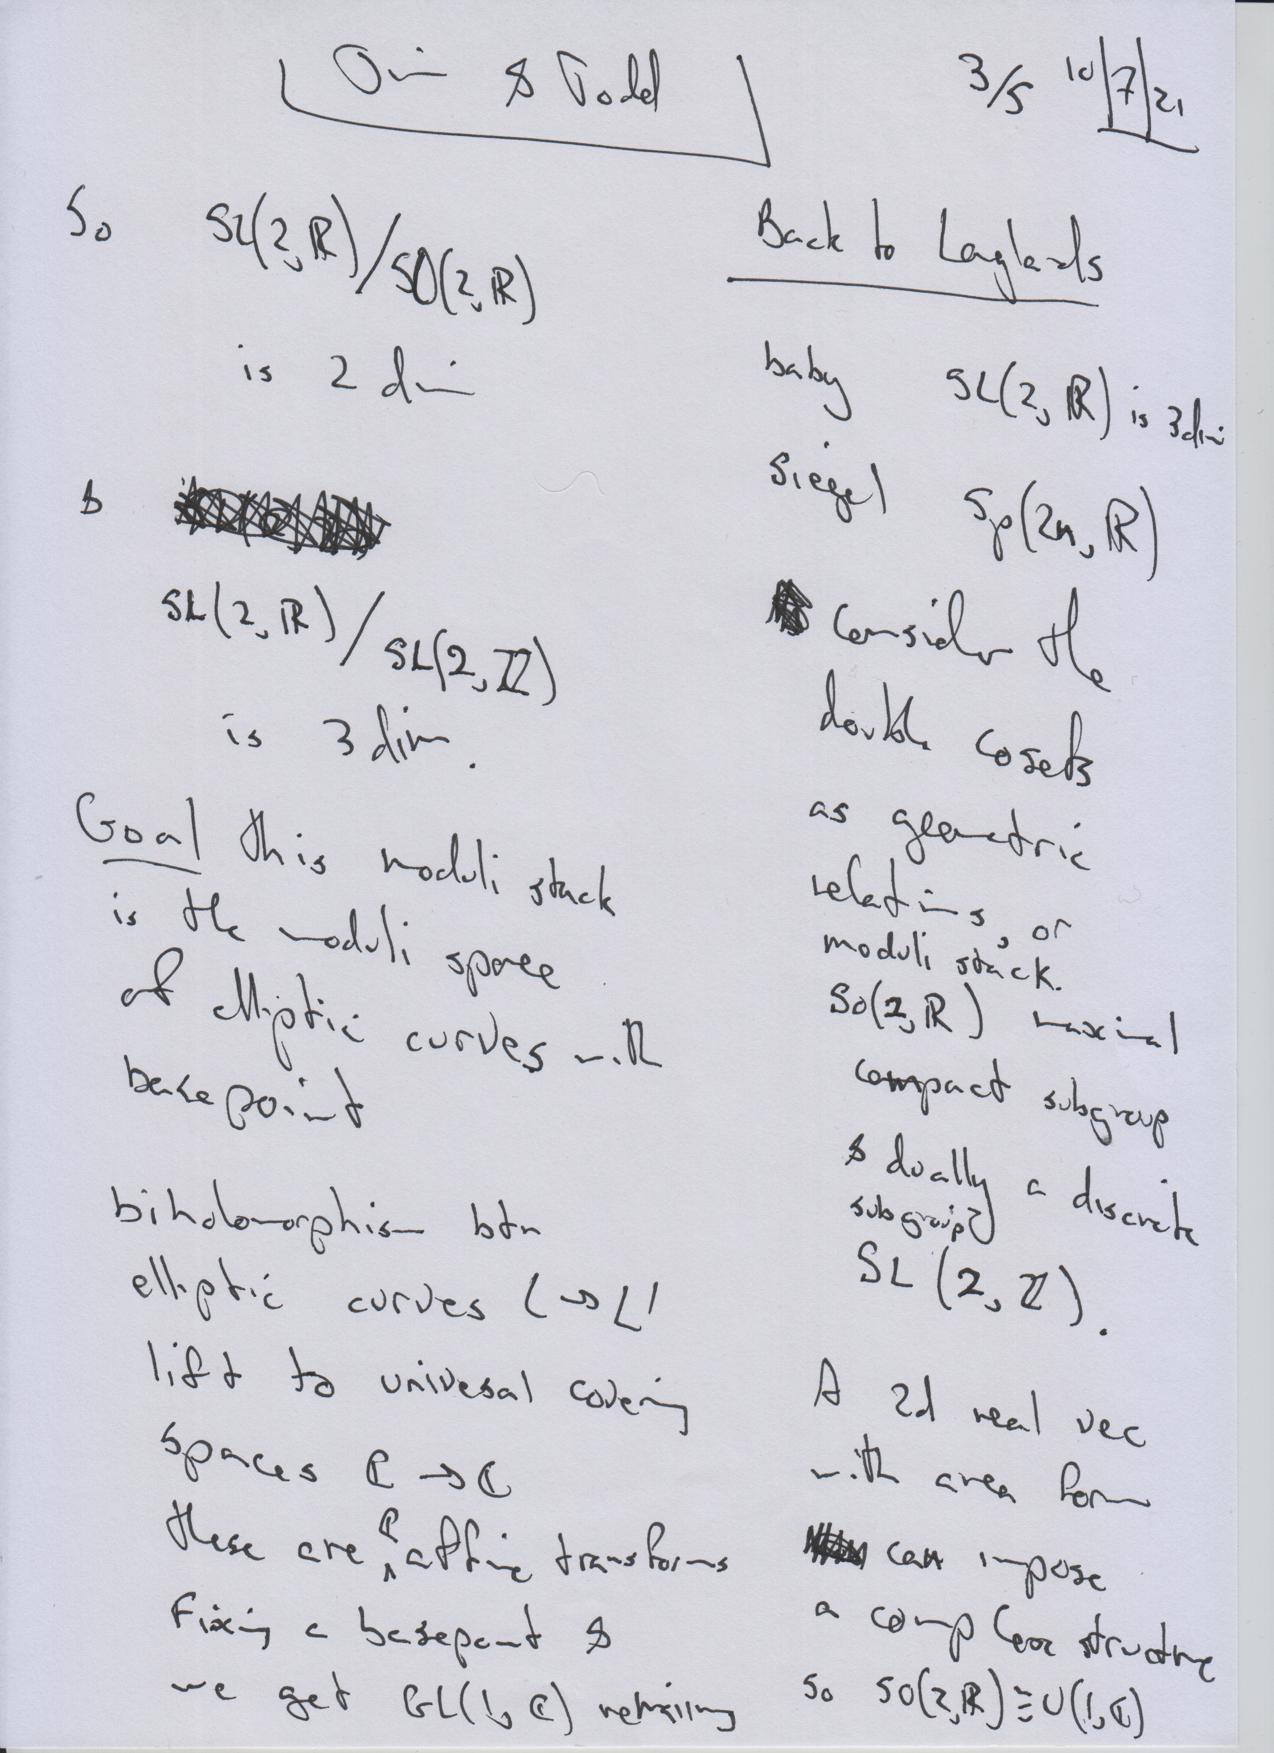 Oim & Todd
3/5 10/7/21
So SL(2,ℝ)/SO(2,ℝ)
is 2 dim
&
SL(2,ℝ)/SL(2,ℤ)
is 3 dim.
Goal this moduli stack
is the moduli space
of elliptic curves with
base point
biholomorphism btn
elliptic curves L→L'
lift to univesal covering
spaces ℂ→ℂ
these are ℂ affine transforms
Fixing a basepoint &
we get GL(1,ℂ) remaining
Back to Langlands
baby SL(2,ℝ) is 3dim
Siegel Sp(2n,ℝ)
Consider the
double cosets
as geometric
relations, or
moduli stack.
SO(2,ℝ) maximal
compact subgroup
& dually a discrete
subgroup?
SL(2,ℤ).
A 2d real vec
with area form
can impose
a complex structure
so SO(2,ℝ)≅U(1,ℂ)